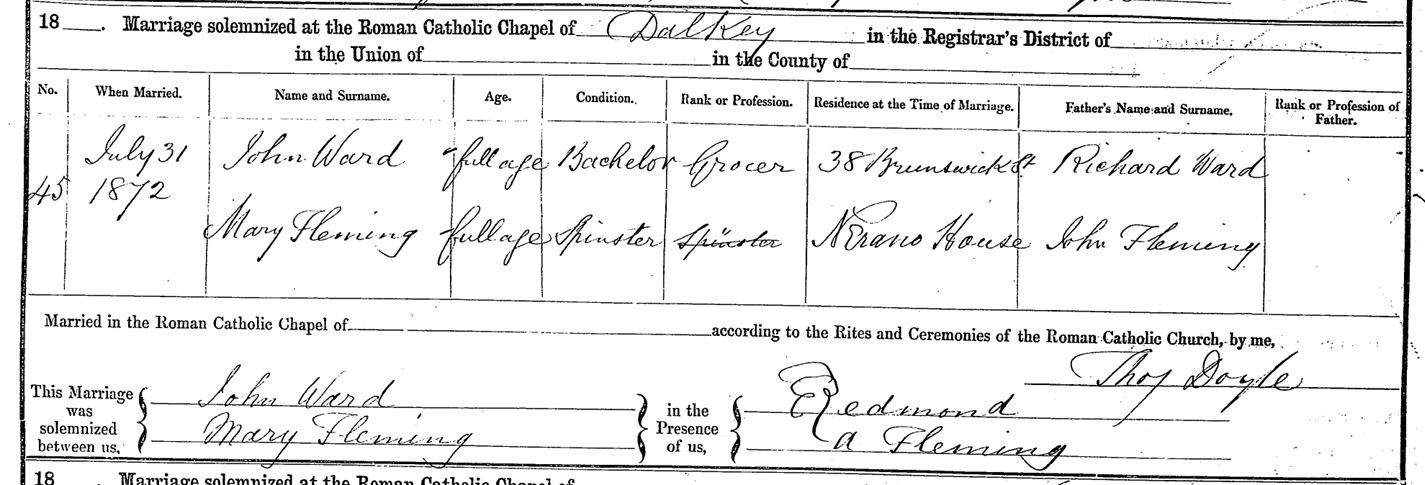 18 . Marriage solemnized at the Roman Catholic Chapel of Dalkey in the Registrar's District of
in the Union of in the County of
No. When Married. Name and Surname. Age. Condition. Rank or Profession. Residence at the Time of Marriage. Father's Name and Surname. Rank or Profession of Father.
45 July 31 1872 John Ward full age Bachelor Grocer 38 Brunswick St Richard Ward
Mary Fleming full age Spinster Spinster Nerano House John Fleming
Married in the Roman Catholic Chapel of according to the Rites and Ceremonies of the Roman Catholic Church, by me,
Thos Doyle
This Marriage was solemnized between us, John Ward
Mary Fleming
in the Presence of us, Redmond
A Fleming
18 . Marriage solemnized at the Roman Catholic Chapel of